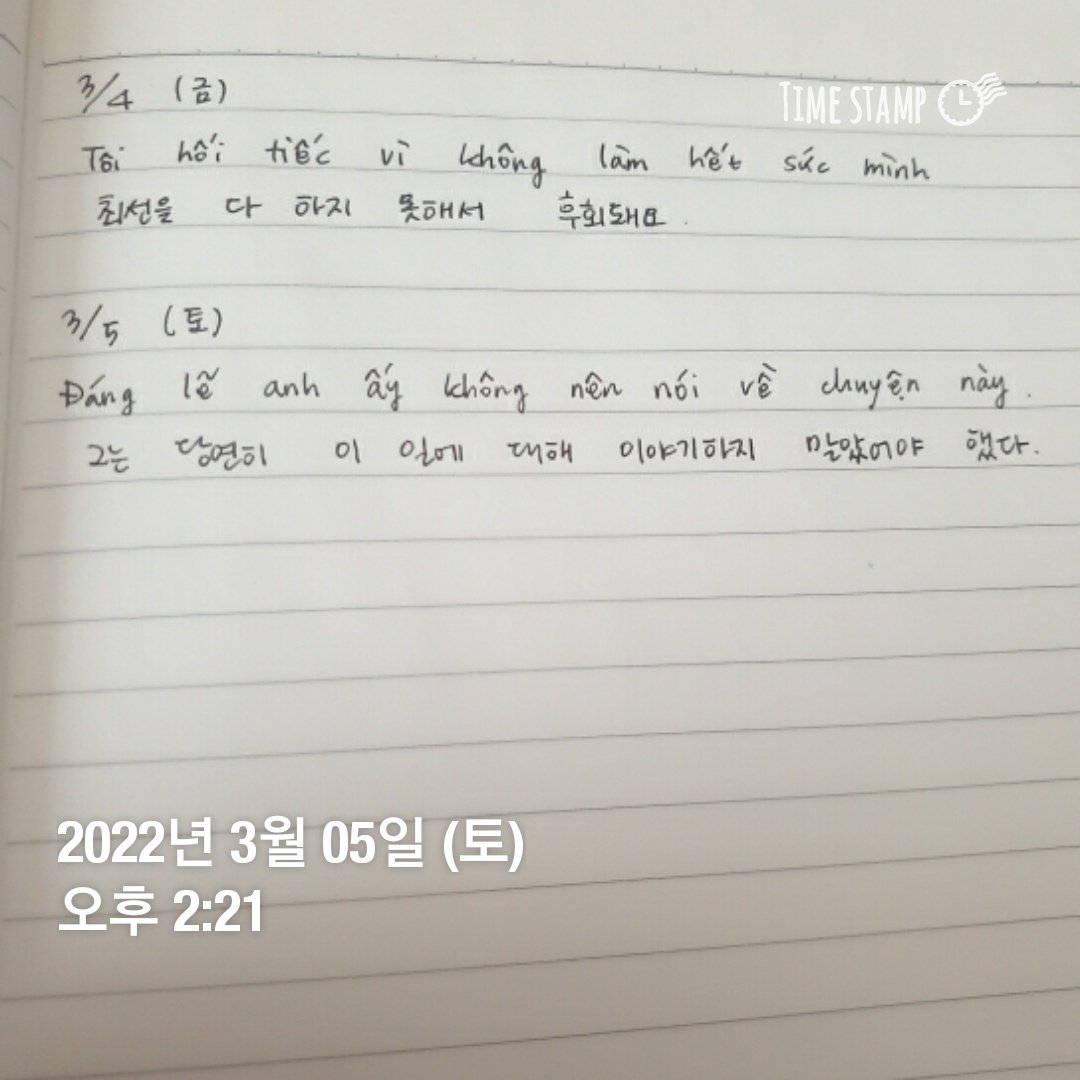 3/4 (금)
TIME STAMP
Tôi hối tiếc vì không làm hết sức mình
최선을 다 하지 못해서 후회돼요.
3/5 (토)
Đáng lẽ anh ấy không nên nói về chuyện này.
그는 당연히 이 일에 대해 이야기하지 말았어야 했다.
2022년 3월 05일 (토)
오후 2:21